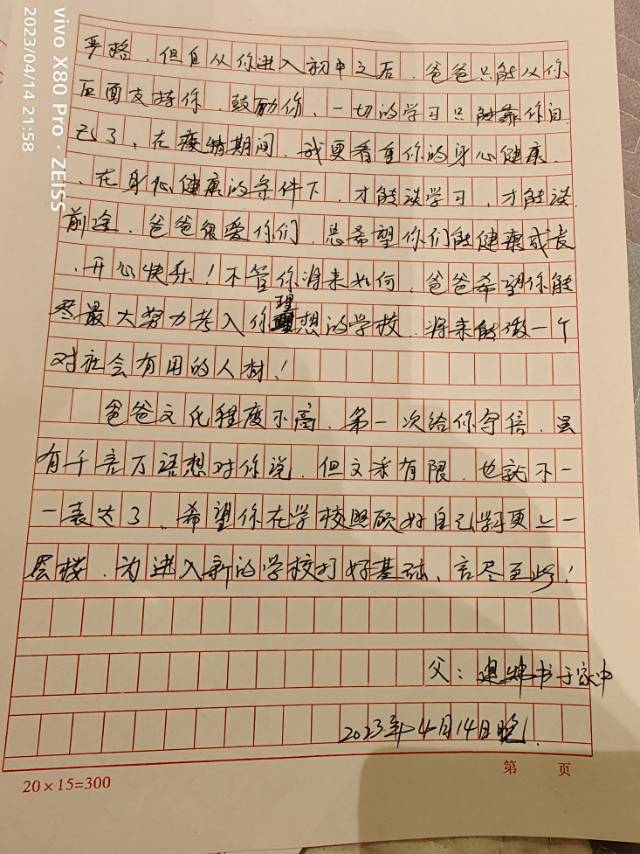 严格，但自从你进入初中之后，爸爸只能从你
后面支持你，鼓励你，一切的学习只能靠你自
己了，在疫情期间，我更看重你的身心健康
，在身心健康的条件下，才能谈学习，才能谈
前途，爸爸很爱你们，总希望你们能健康成长
，开心快乐！不管你将来如何，爸爸希望你能
尽最大努力考入你理想的学校，将来能做一个
对社会有用的人材！
爸爸文化程度不高，第一次给你写信，虽
有千言万语想对你说，但文采有限，也就不一
一表达了，希望你在学校照顾好自己学习更上一
层楼，为进入新的学校打好基础，言尽至此！
父：建坤书于家中
2023年4月14日晚！
20×15=300
第 页
vivo X80 Pro · ZEISS
2023/04/14 21:58